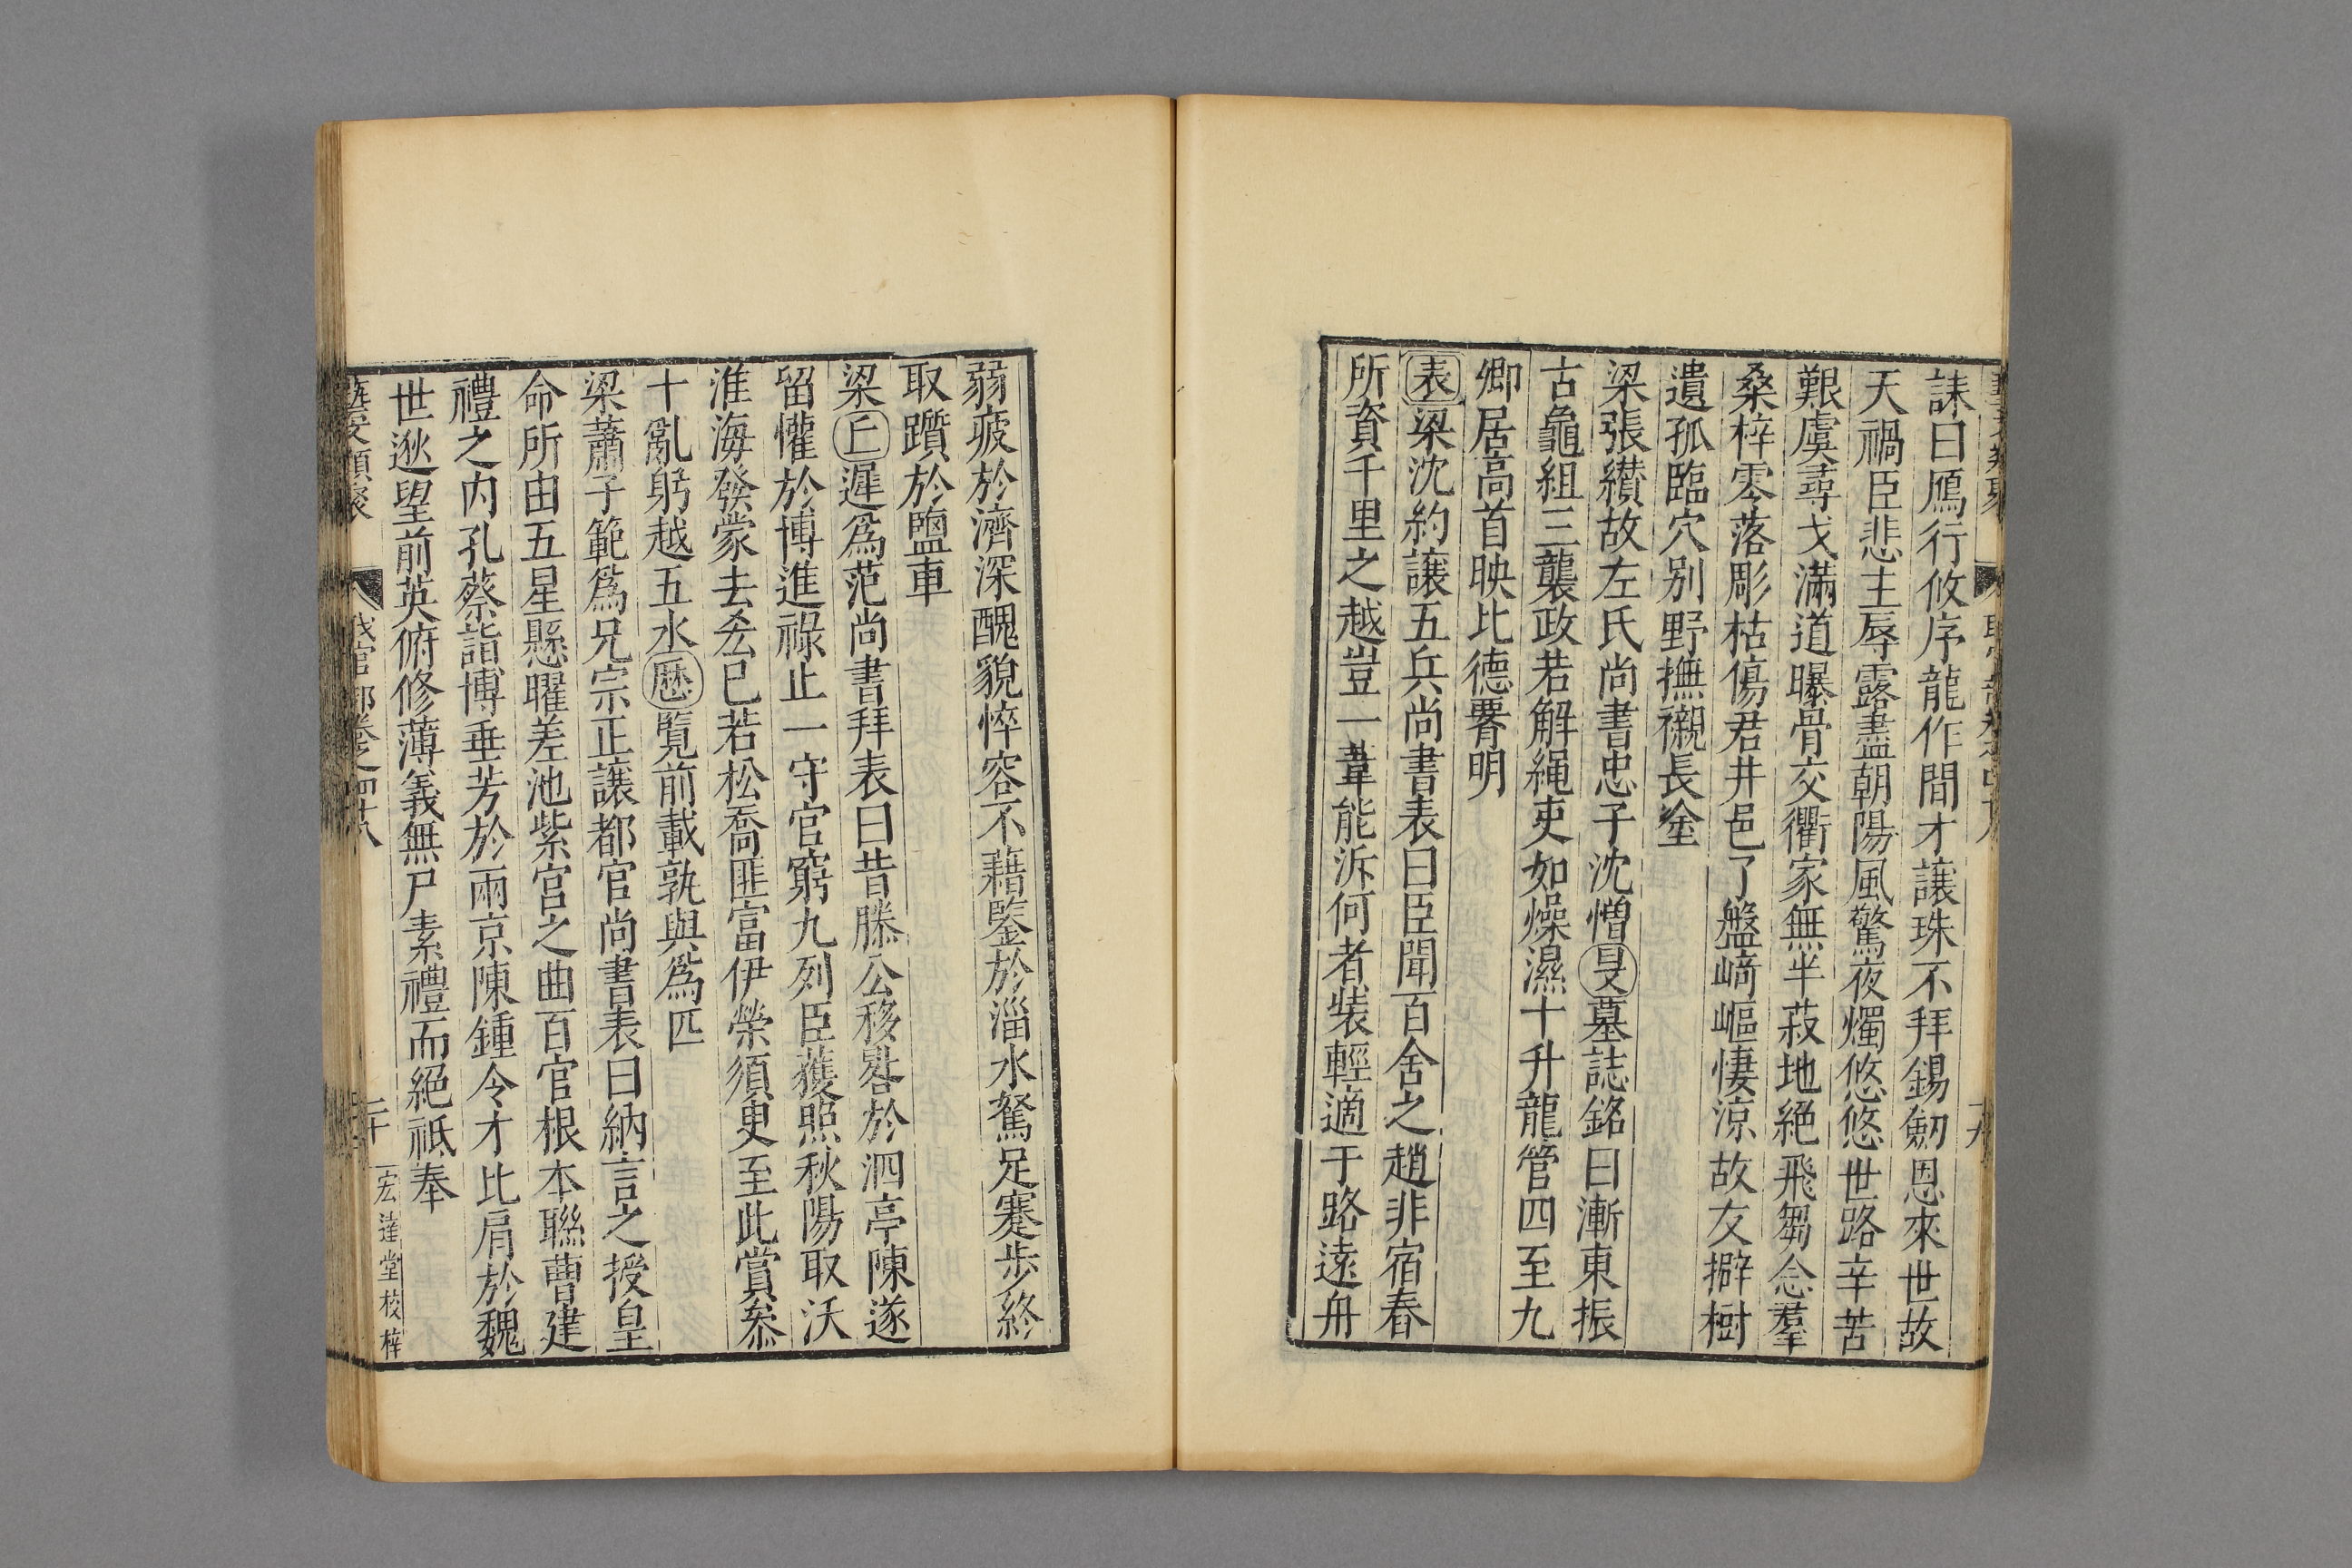 誄曰鴈行攸序龍作間才讓珠不拜錫劒恩來世故
天禍臣悲主辱露盡朝陽風驚夜燭悠悠世路辛苦
艱虞尋戈滿道曝骨交衢家無半菽地絕飛芻念羣
桑梓零落彫枯傷君井邑了盤﨑嶇悽涼故友擗樹
遺孤臨穴别野撫櫬長塗
梁張纘故左氏尚書忠子沈憎旻墓誌銘曰漸東振
古龜組三襲政若解繩吏如燥濕十升龍管四至九
卿居高首映比德覈明
表梁沈約讓五兵尚書表曰臣聞百舍之趙非宿舂
所資千里之越豈一葦能泝何者裝輕適于路遠舟
弱疲於濟深醜貌悴容不藉鑒於淄水駑足蹇步終
取躓於鹽車
梁丘遲爲范尚書拜表曰昔滕公移畧於泗亭陳遂
留懽於博進祿止一守官窮九列臣蒦照秋陽取沃
淮海發蒙去㕕已若松喬匪富伊榮須臾至此賞叅
十亂躬越五水歷覽前載孰與爲匹
梁蕭子範爲兄宗正讓都官尚書表曰納言之授皇
命所由五星懸曜差池紫宮之曲百官根本聯曹建
禮之内孔蔡詣博垂芳於兩京陳鍾令才比肩於魏
世逖望前英俯修薄義無尸素禮而絕祗奉
藝文類聚 職官部卷之四十八 二十 宏達堂校梓